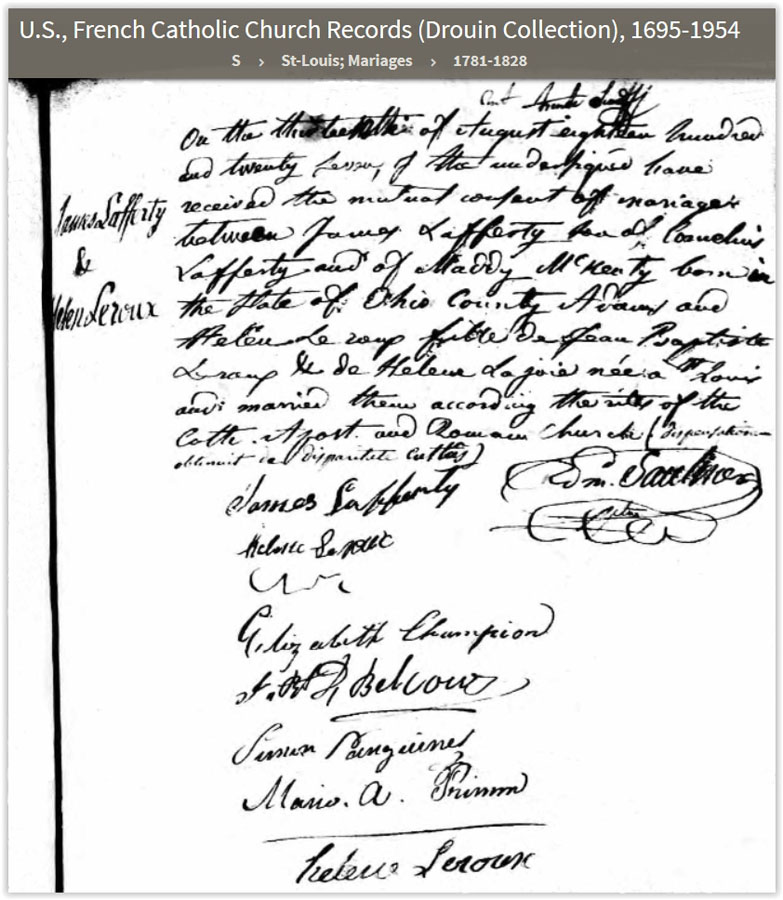 U.S., French Catholic Church Records (Drouin Collection), 1695-1954
S › St-Louis; Mariages › 1781-1828
James Lafferty
&
Helen Leroux
On the of August eighteen hundred
and twenty of the undersigned have
received the mutual consent of mariage
between James Lafferty son of Cornelius
Lafferty and of Maddy McKenty born in
the State of Ohio County Adams and
Helen Leroux fille de Jean Baptiste
Leroux & de Helene Lajoie née a St Louis
and married them according the rites of the
Cath. Apost. and Romain Church (dispensation
obtenuit de disparitate cultus)
Edm. Saulnier
James Lafferty
Helene Leroux
Elizabeth Champion
Belcour
Simon Sanguinet
Marie. A. Primm
helene Leroux